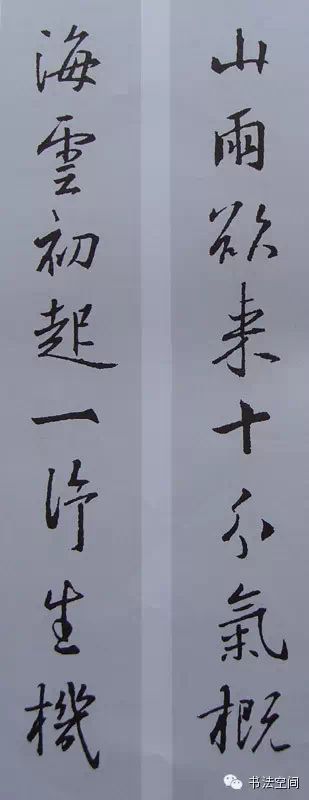 山雨欲来十分氣概
海雲初起一生機
书法空间